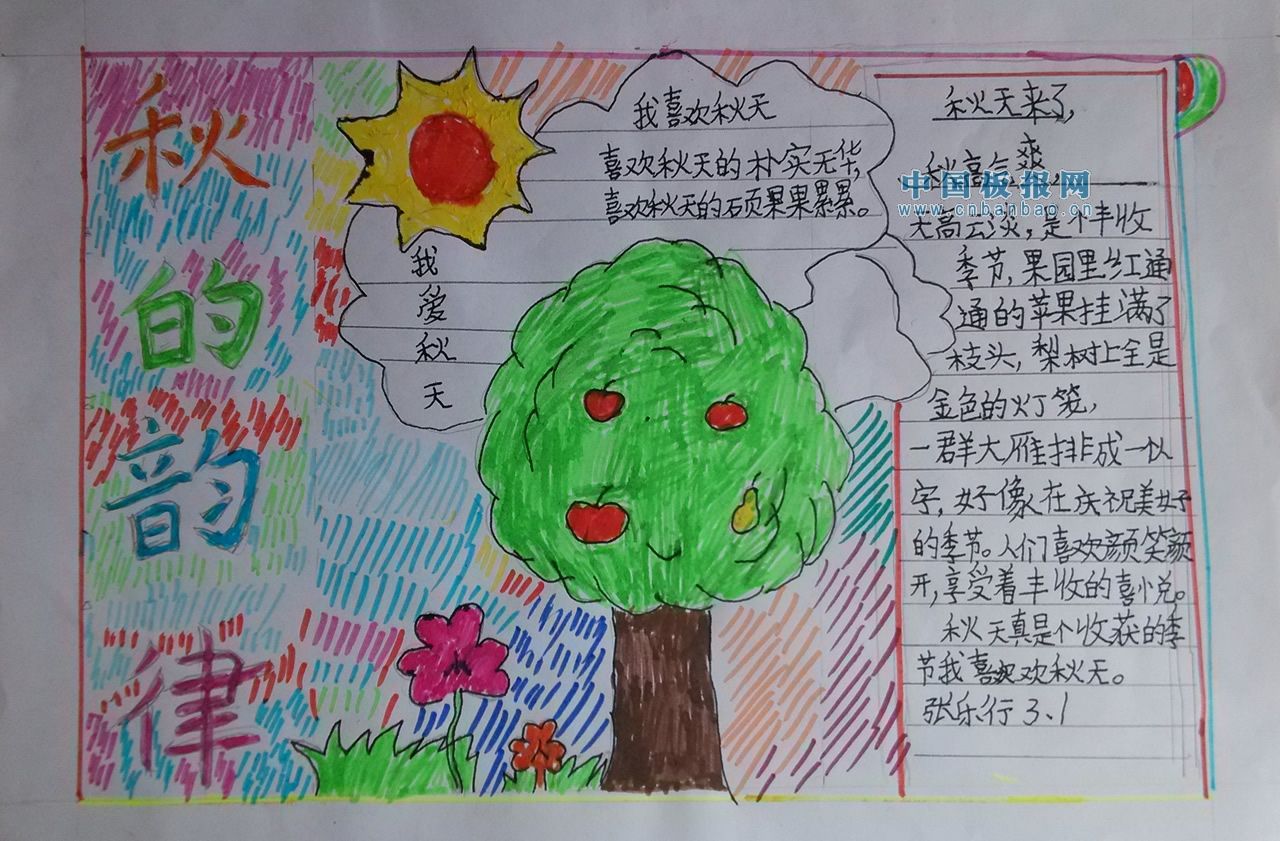 秋
的
韵
律
我喜欢秋天
喜欢秋天的朴实无华,
喜欢秋天的硕果果累累。
我
爱
秋
天
秋天来了,
秋喜气爽,
天高云淡,是个丰收
季节,果园里红通
通的苹果挂满了
枝头,梨树上全是
金色的灯笼,
一群大雁排成一从
字,好像在庆祝美好
的季节。人们喜欢颜笑颜
开,享受着丰收的喜悦。
秋天真是个收获的季
节我喜欢秋天。
张乐行 3、1
中国板报网
www.cnbanbao.cn